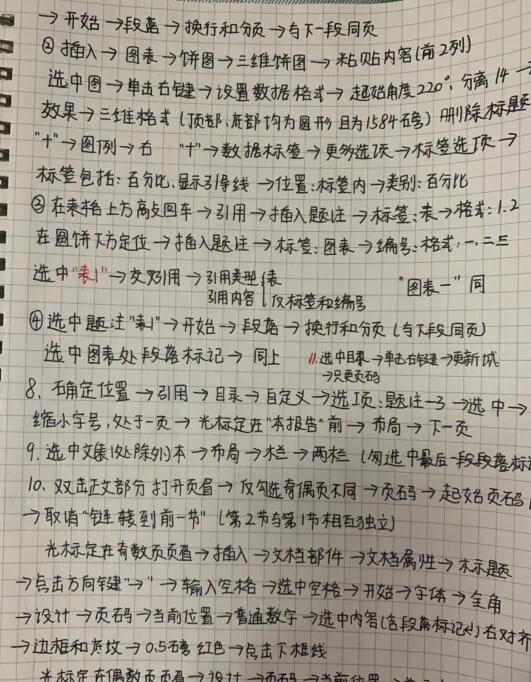 →开始→段落→换行和分页→与下一段同页
②插入→图表→饼图→三维饼图→粘贴内容(前2列)
选中图→单击右键→设置数据格式→起始角度220°,分离14
效果→三维格式(顶部,底部均为圆形且为1584磅)删除标题
"+"→图例→右 "+"→数据标签→更多选项→标签选项→
标签包括:百分比,显示引导线→位置:标签内→类别:百分比
③在表格上方高亮回车→引用→插入题注→标签:表→格式:1.2
在圆饼下方定位→插入题注→标签:图表→编号:格式:一.二三
选中"表1"→交叉引用→引用类型:表 "图表一"同
引用内容:仅标签和编号
④选中题注"表1"→开始→段落→换行和分页(与下段同页)
选中图表处段落标记→同上 11.选中目录→单击右键→更新域
→只更页码
8.确定位置→引用→目录→自定义→选项:题注→3→选中→
缩小字号,处于一页→光标定在"本报告"前→布局→下一页
9.选中文本(处除外)本→布局→栏→两栏(勿选中最后一段段落标
10.双击正文部分打开页眉→仅勾选奇偶页不同→页码→起始页码1
→取消"链接到前一节"(第2节与第1节相互独立)
光标定在奇数页页眉→插入→文档部件→文档属性→标题
→点击方向键"→"→输入空格→选中空格→开始→字体→全角
→设计→页码→当前位置→普通数字→选中内容(含段落标记↵)右对齐
→边框和底纹→0.5磅红色→点击下框线
光标定在偶数页页眉→设计→页码→当前位置→